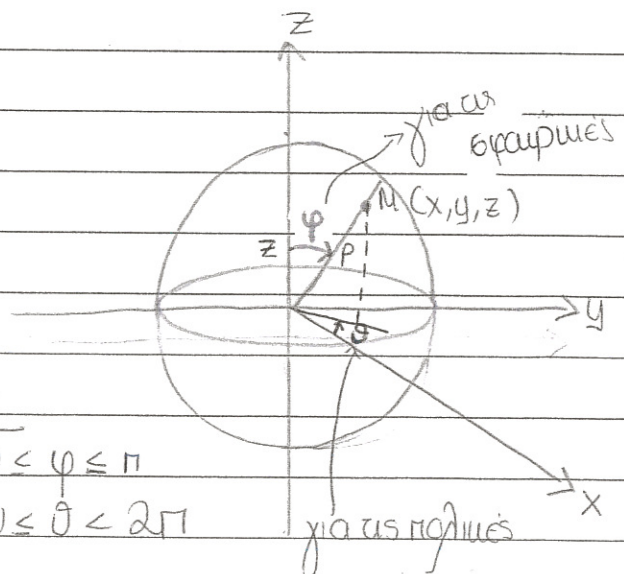 z
για τις
σφαιρικές
M (x,y,z)
φ
z
ρ
y
θ
≤ φ ≤ π
≤ θ < 2π
x
για τις πολικές